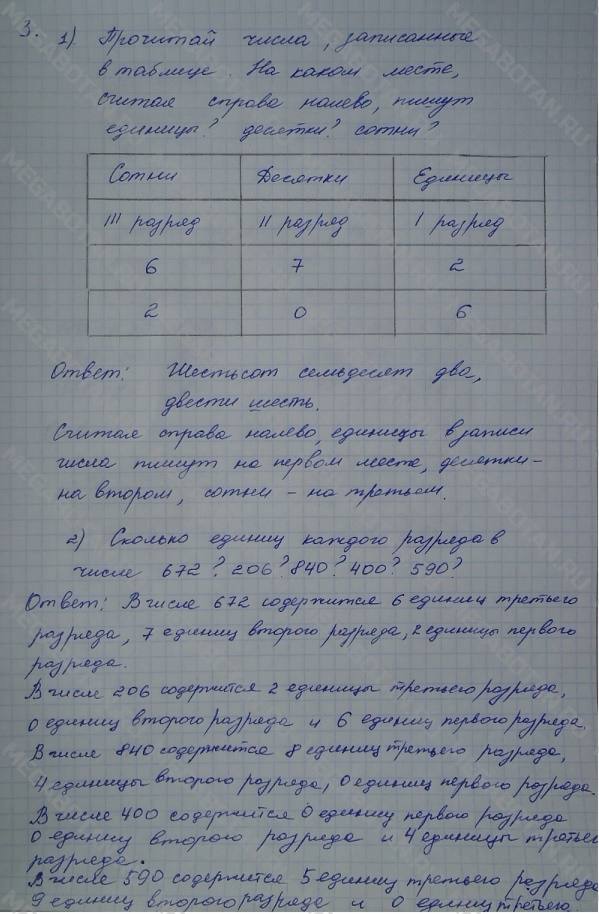 3. 1) Прочитай числа, записанные
в таблице. На каком месте,
считая справа налево, пишут
единицы? десятки? сотни?
Сотни Десятки Единицы
III разряд II разряд I разряд
6 7 2
2 0 6
Ответ: Шестьсот семьдесят два,
двести шесть.
Считая справа налево, единицы в записи
числа пишут на первом месте, десятки –
на втором, сотни – на третьем.
2) Сколько единиц каждого разряда в
числе 672? 206? 840? 400? 590?
Ответ: В числе 672 содержится 6 единиц третьего
разряда, 7 единиц второго разряда, 2 единицы первого
разряда.
В числе 206 содержится 2 единицы третьего разряда,
0 единиц второго разряда и 6 единиц первого разряда.
В числе 840 содержится 8 единиц третьего разряда,
4 единицы второго разряда, 0 единиц первого разряда.
В числе 400 содержится 0 единиц первого разряда
0 единиц второго разряда и 4 единицы третьег
разряда.
В числе 590 содержится 5 единиц третьего разряда
9 единиц второго разряда и 0 единиц третьего.
MEGABOTAN.RU